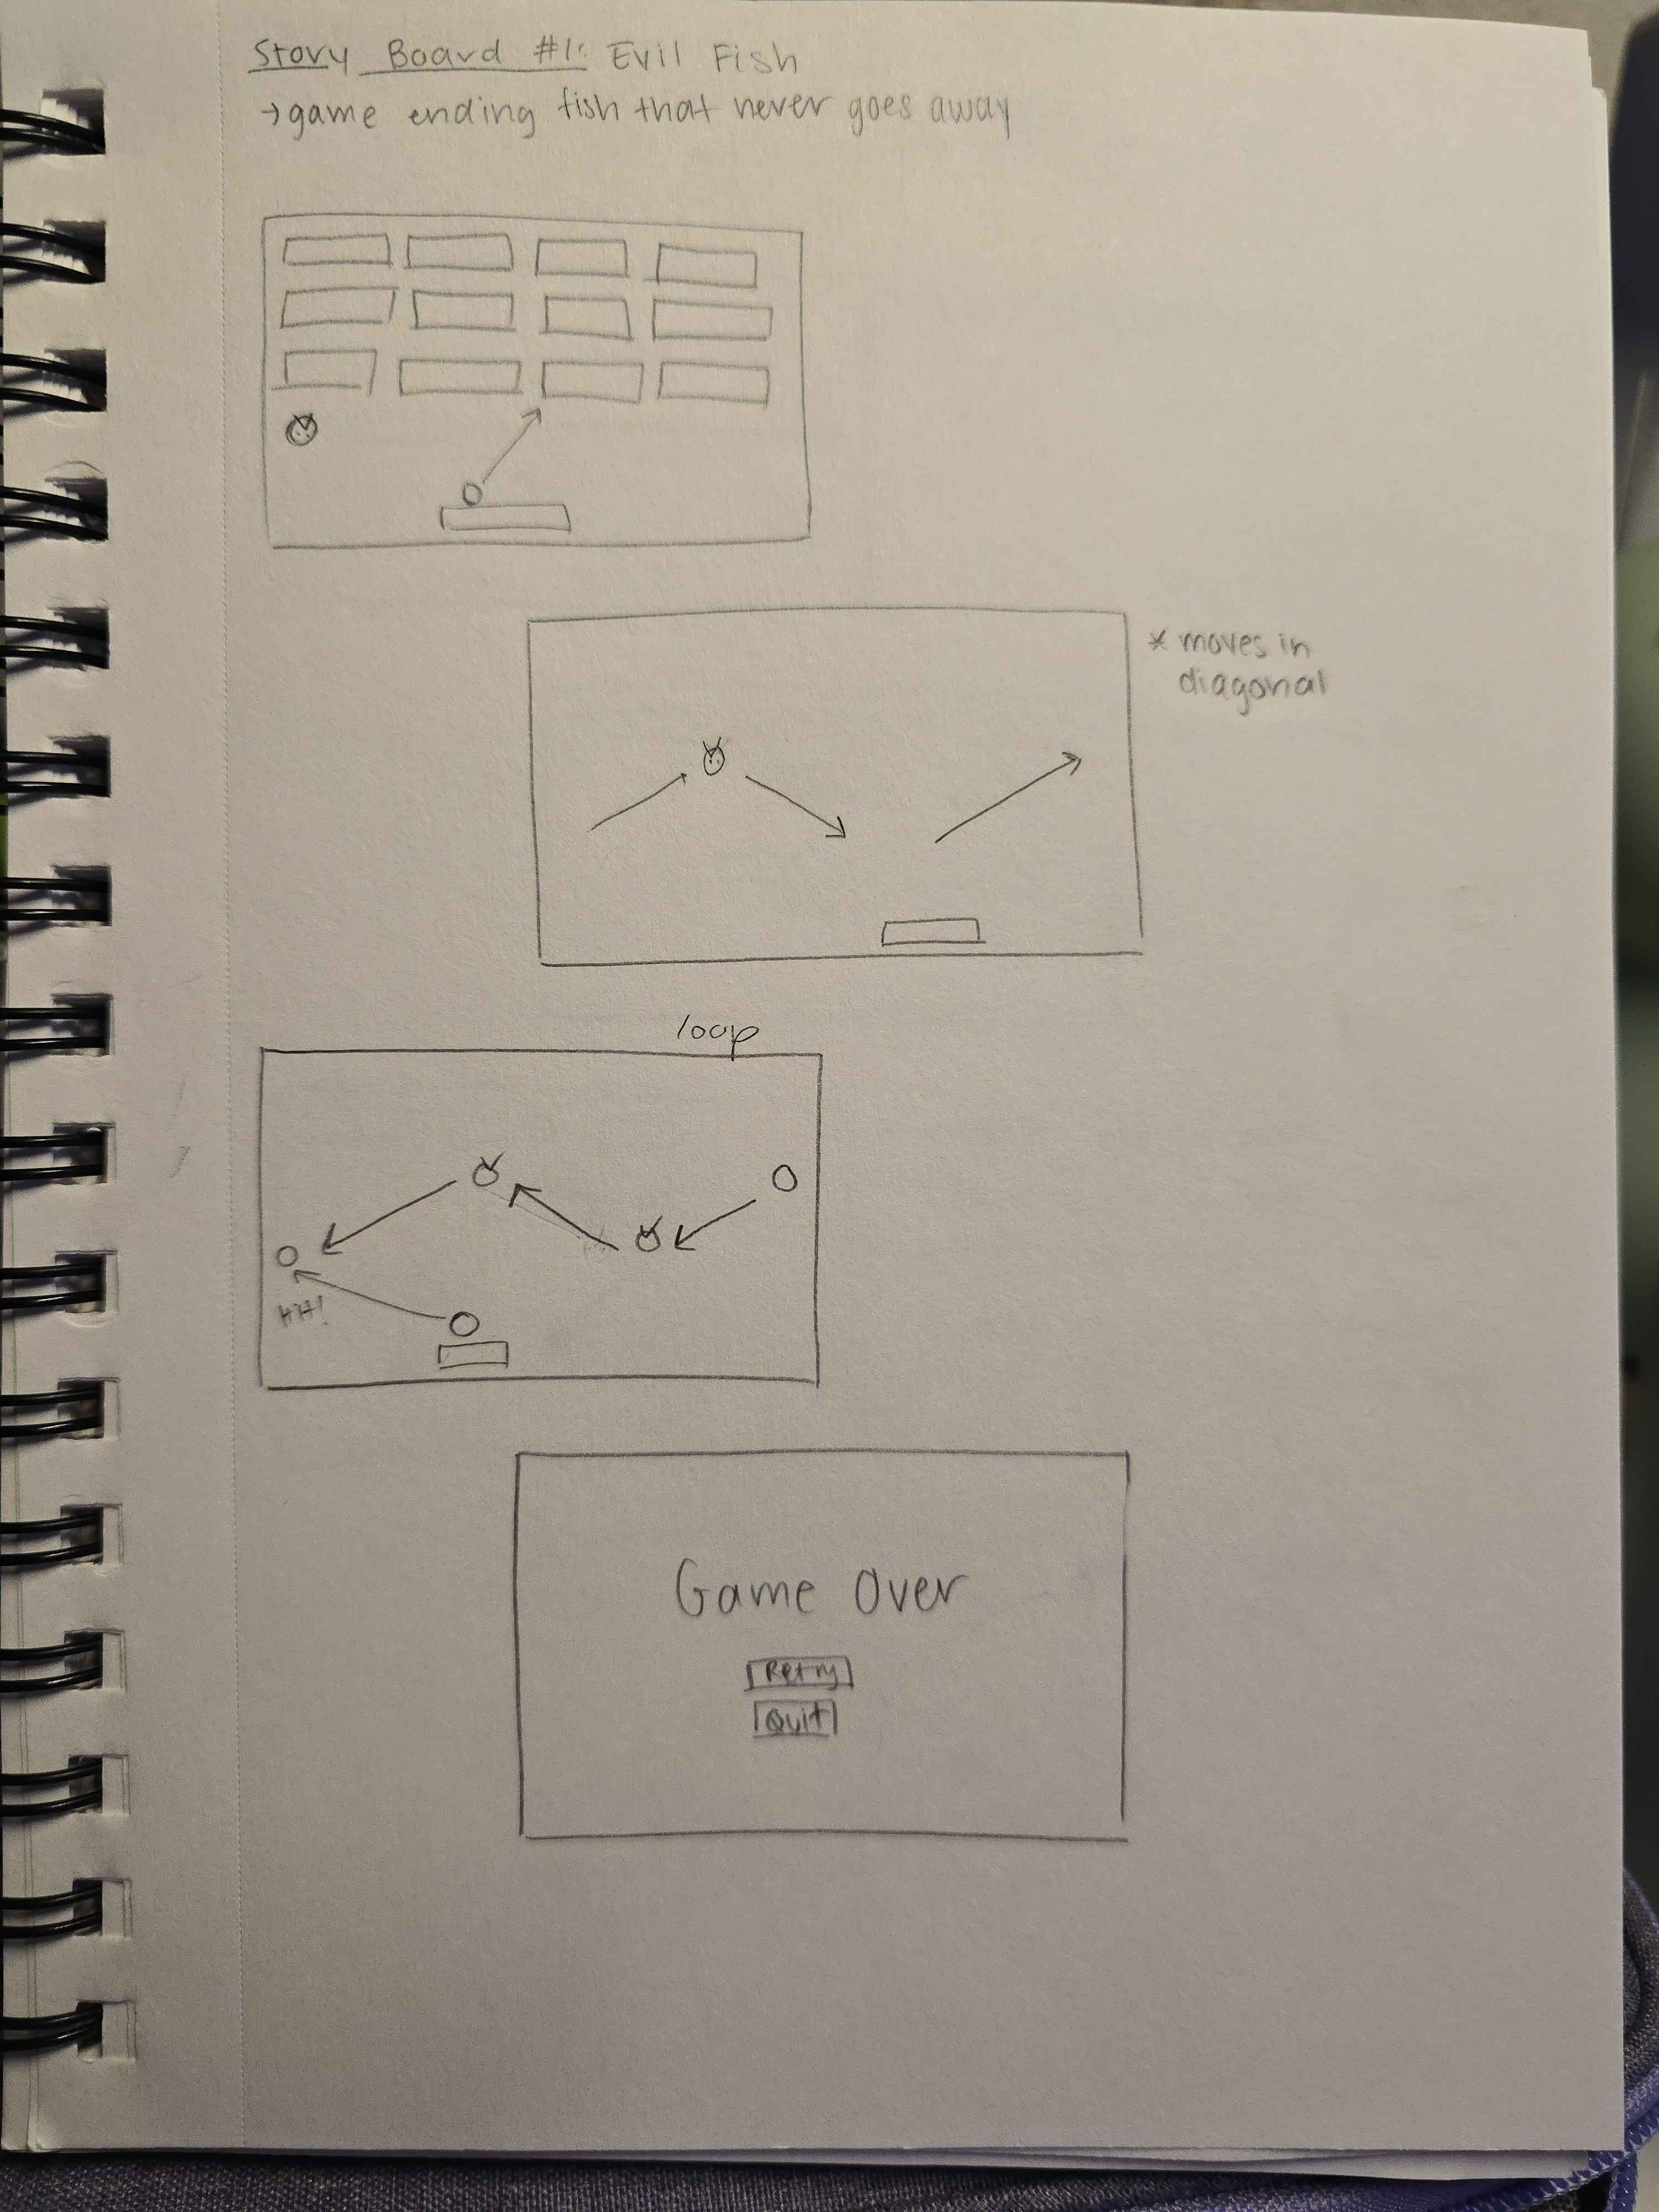 Story Board #1: Evil Fish
→ game ending fish that never goes away
* moves in
diagonal
loop
Hit!
Game Over
Retry
Quit